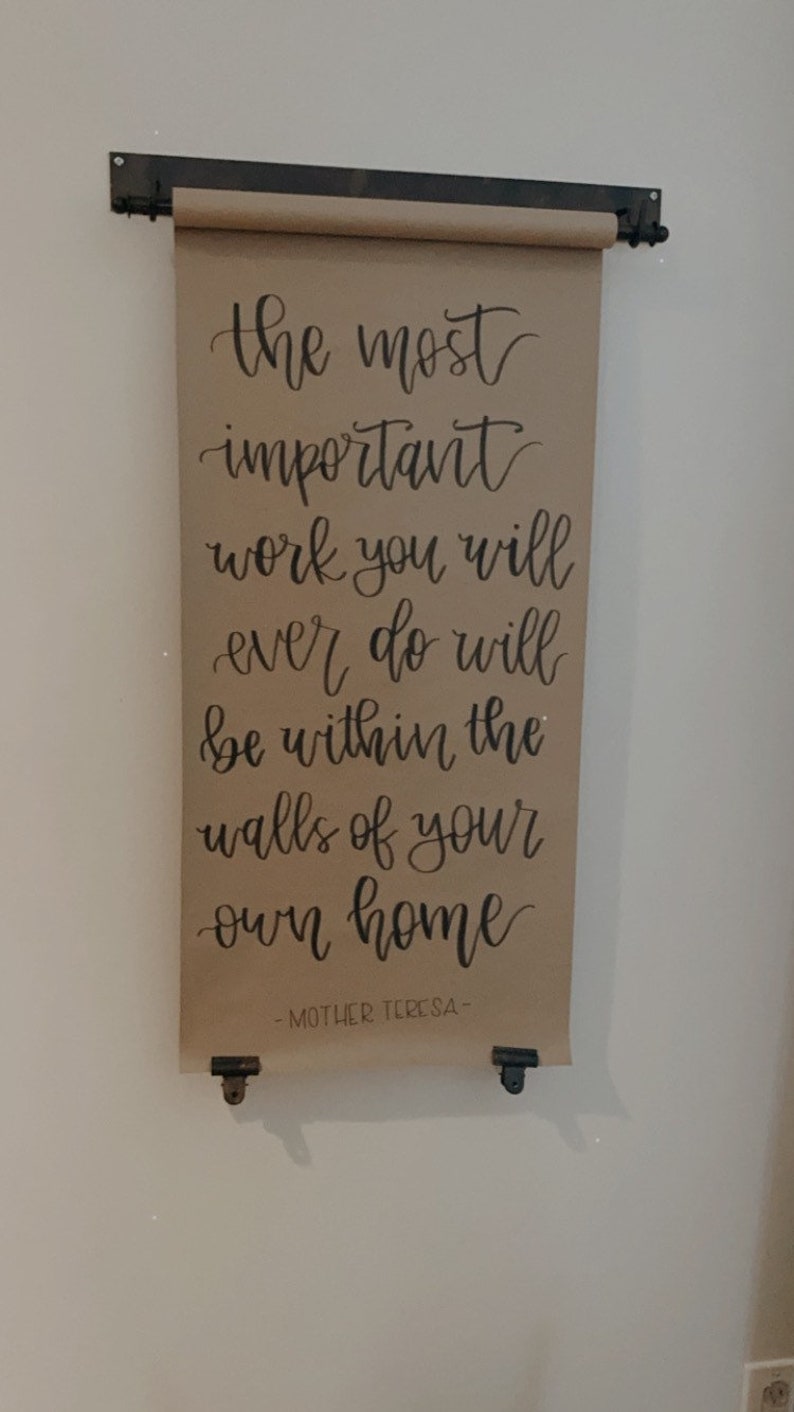 the most
important
work you will
ever do will
be within the
walls of your
own home
-MOTHER TERESA-